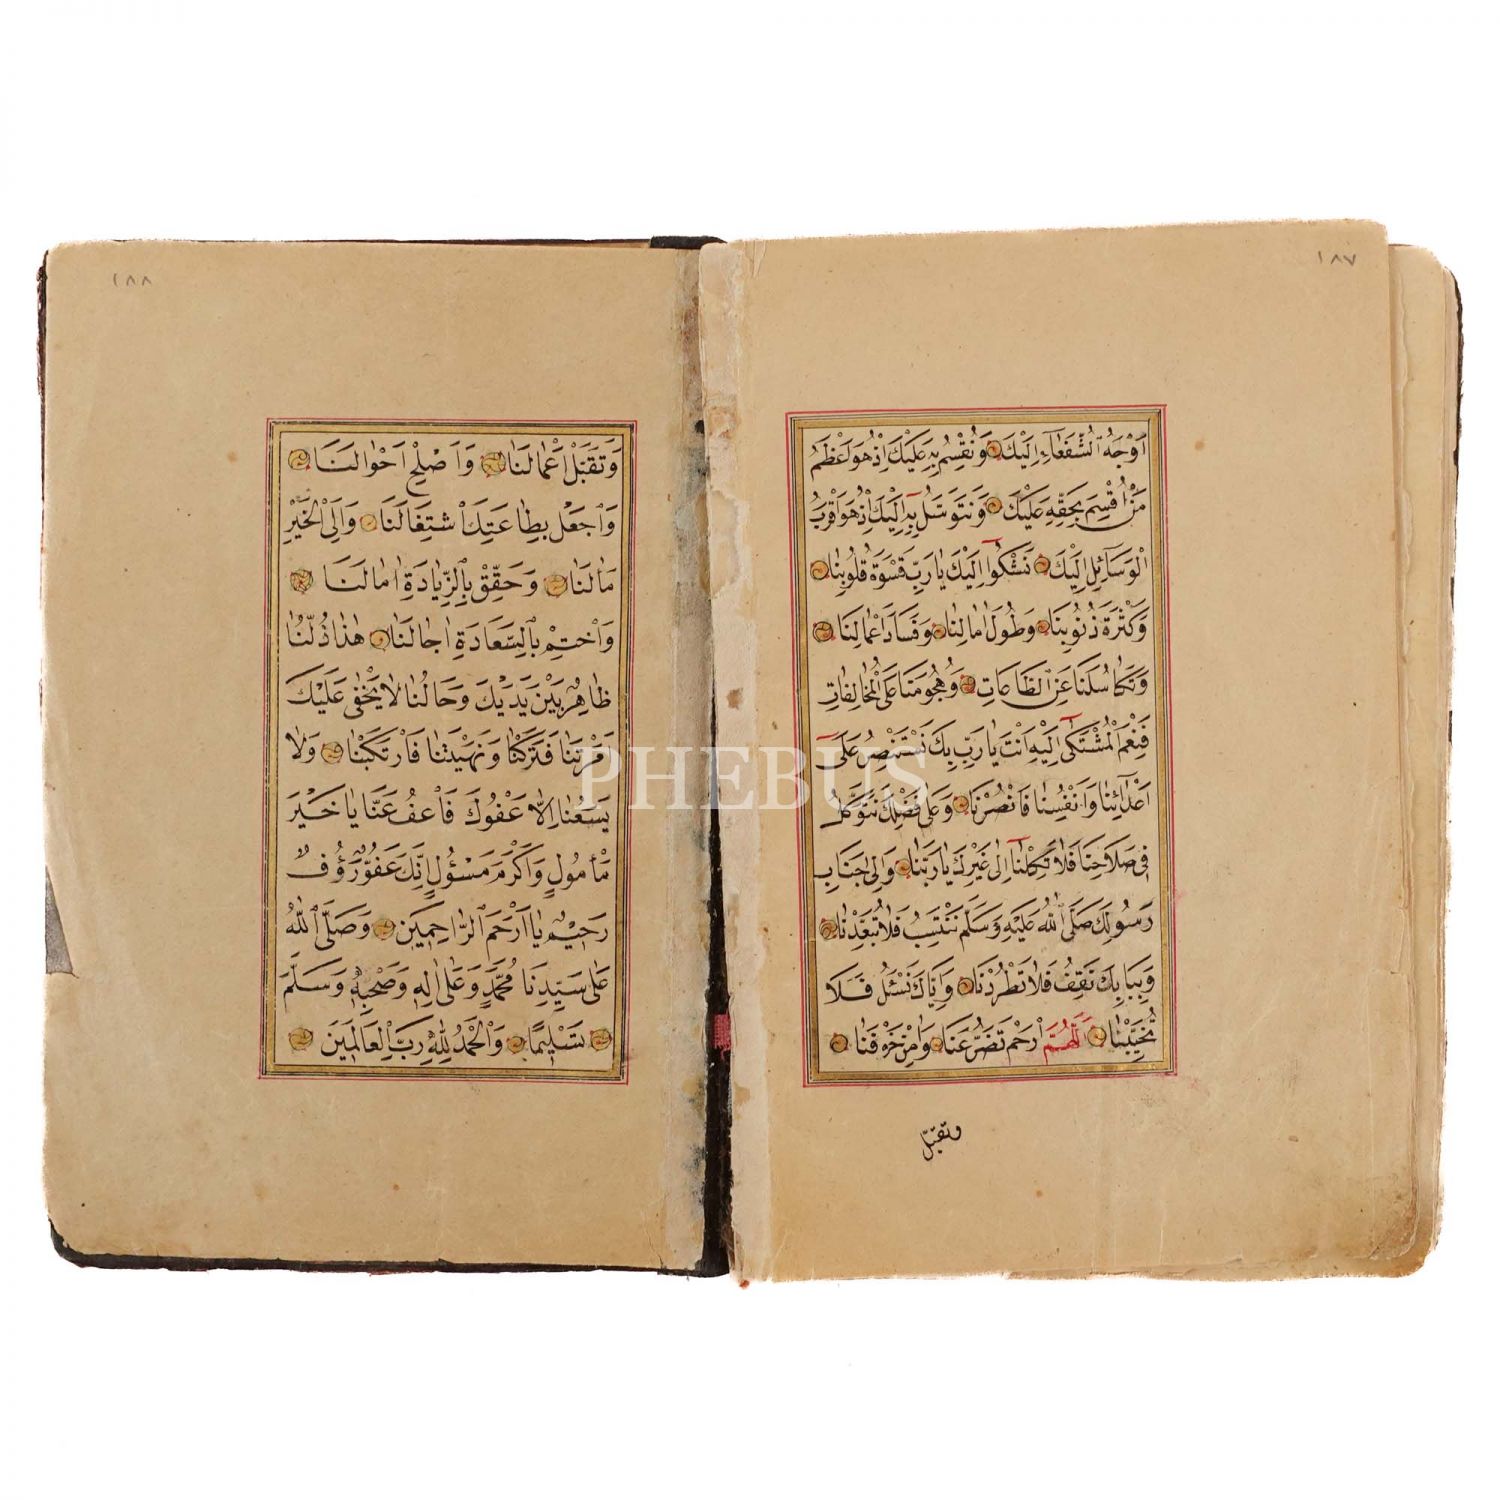 ١٨٧
اَوْجَهُ الشُّفَعَاءِ اِلَيْكَ وَنُقْسِمُ بِهِ عَلَيْكَ اِذْ هُوَ اَعْظَمُ
مَنْ اُقْسِمَ بِحَقِّهِ عَلَيْكَ وَنَتَوَسَّلُ بِهِ اِلَيْكَ اِذْ هُوَ اَقْرَبُ
الْوَسَآئِلِ اِلَيْكَ نَشْكُوا اِلَيْكَ يَا رَبِّ قَسْوَةَ قُلُوبِنَا
وَكَثْرَةَ ذُنُوبِنَا وَطُولَ اٰمَالِنَا وَفَسَادَ اَعْمَالِنَا
وَتَكَاسُلَنَا عَنِ الطَّاعَاتِ وَهُجُومَنَا عَلَى الْمُخَالِفَاتِ
فَنِعْمَ الْمُشْتَكٰى اِلَيْهِ اَنْتَ يَا رَبِّ بِكَ نَسْتَنْصِرُ عَلٰى
اَعْدَائِنَا وَاَنْفُسِنَا فَانْصُرْنَا وَعَلٰى فَضْلِكَ نَتَوَكَّلُ
فِي صَلَاحِنَا فَلَا تَكِلْنَا اِلٰى غَيْرِكَ يَا رَبَّنَا وَاِلٰى جَنَابِ
رَسُولِكَ صَلَّى اللّٰهُ عَلَيْهِ وَسَلَّمَ نَنْتَسِبُ فَلَا تُبَعِّدْنَا
وَبِبَابِكَ نَقِفُ فَلَا تَطْرُدْنَا وَاِيَّاكَ نَسْئَلُ فَلَا
تُخَيِّبْنَا اَللّٰهُمَّ ارْحَمْ تَضَرُّعَنَا وَاٰمِنْ خَوْفَنَا
وتقبل
١٨٨
وَتَقَبَّلْ اَعْمَالَنَا وَاَصْلِحْ اَحْوَالَنَا
وَاجْعَلْ بِطَاعَتِكَ اشْتِغَالَنَا وَاِلَى الْخَيْرِ
مَاٰلَنَا وَحَقِّقْ بِالزِّيَادَةِ اٰمَالَنَا
وَاخْتِمْ بِالسَّعَادَةِ اٰجَالَنَا هٰذَا ذُلُّنَا
ظَاهِرٌ بَيْنَ يَدَيْكَ وَحَالُنَا لَا يَخْفٰى عَلَيْكَ
اَمَرْتَنَا فَتَرَكْنَا وَنَهَيْتَنَا فَارْتَكَبْنَا وَلَا
يَسَعُنَا اِلَّا عَفْوُكَ فَاعْفُ عَنَّا يَا خَيْرَ
مَأْمُولٍ وَاَكْرَمَ مَسْؤُلٍ اِنَّكَ عَفُوٌّ رَؤُفٌ
رَحِيْمٌ يَا اَرْحَمَ الرَّاحِمِينَ وَصَلَّى اللّٰهُ
عَلٰى سَيِّدِنَا مُحَمَّدٍ وَعَلٰى اٰلِهٖ وَصَحْبِهٖ وَسَلَّمَ
تَسْلِيْمًا وَالْحَمْدُ لِلّٰهِ رَبِّ الْعَالَمِيْنَ
PHEBUS